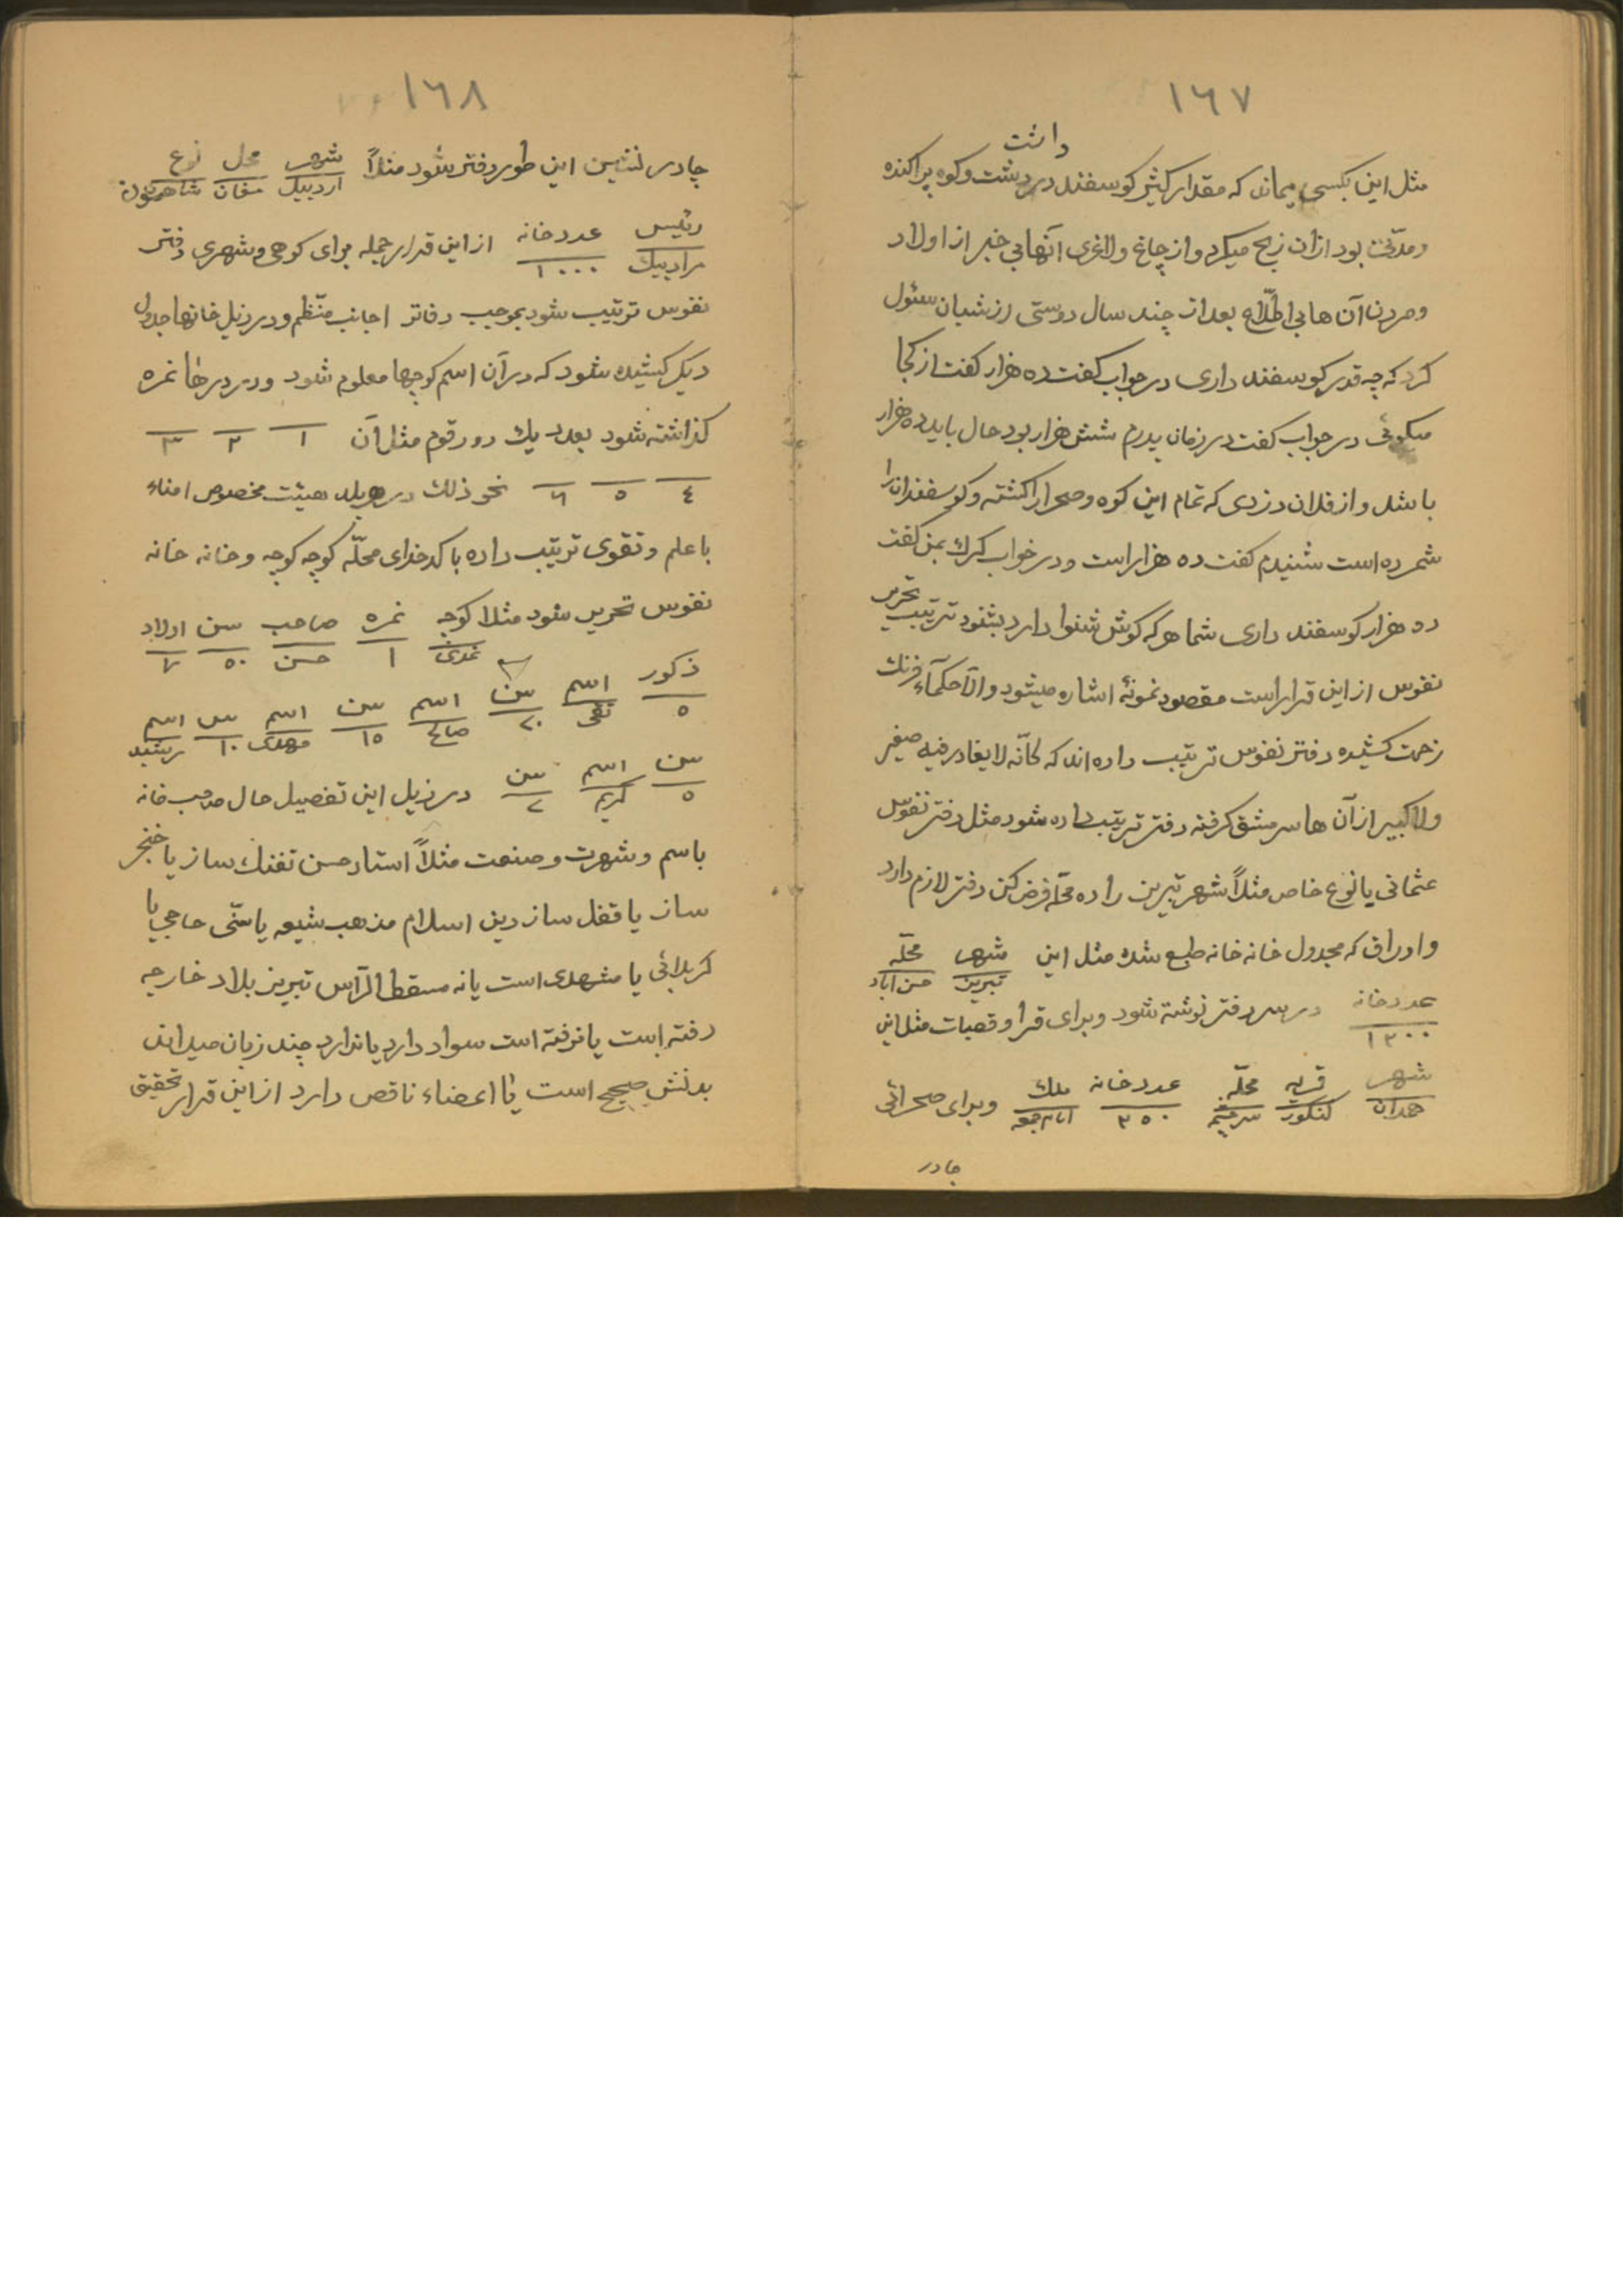 ١٦٧
داشت
مثل این بکسی میماند که مقدار کثیر کوسفند در دشت و کوه پراکنده
و مدّتی بود از آن زبح میکرد و از چاغ و لاغری آنها بی خبر از اولاد
و مردن آن ها بی اطّلاع بعد از چند سال دوستی از شبان سئول
کرد که چه قدر کوسفند داری در جواب کفت ده هزار کفت از کجا
میکوئی در جواب کفت در زمان پدرم شش هزار بود حال باید ده هزار
باشد و از فلان دزدی که تمام این کوه و صحرا را کشته و کوسفندان را
شمرده است شنیدم کفت ده هزار است و در خواب کرك بمن کفت
ده هزار کوسفند داری شما هر که کوش شنوا دارد بشنود ترتیب تحریر
نفوس از این قرار است مقصود نمونهٔ اشاره میشود و الّا حکمآء فرنك
زحمت کشیده دفتر نفوس ترتیب داده اند که کانّه لا یغادر فیه صغیر
ولا کبیر از آن ها سرمشق کرفته دفتر ترتیب داده شود مثل دفتر نفوس
عثمانی یا نوع خاص مثلاً شهر تبریز را ده محلّه فرض کن دفتر لازم دارد
و اوراق که مجدول خانه خانه طبع شده مثل این شهر محلّه
تبریز حسن آباد
عدد خانه در سر دفتر نوشته شود و برای قرا و قصبات مثل این
١٢٠٠
شهر قریه محلّه عدد خانه ملك و برای صحرائی
همدان کنکور سرچشمه ٢٥٠ امام جمعه
چادر
١٦٨
چادر نشین این طور دفتر شود مثلاً شهر محل نوع
اردبیل مغان شاهسون
رئیس عدد خانه از این قرار جمله برای کوهی و شهری دفتر
مراد بیك ١٠٠٠
نفوس ترتیب شود بموجب دفاتر اجانب منتّظم و در زیل خانها جدول
دیکر کشیده شود که در آن اسم کوچها معلوم شود و در درها نمره
کذاشته شود بعدد یك دو رقوم مثل آن ١ ٢ ٣
٤ ٥ ٦ نحو ذلك در هر بلد هیئت مخصوص امناء
با علم و تقوی ترتیب داده با کدخدای محلّه کوچه کوچه و خانه خانه
نفوس تحریر شود مثلا کوچه نمره صاحب سن اولاد
١ حسن ٥٠ ٧
ذکور اسم سن اسم سن اسم سن اسم
٥ تقی ٢٠ صالح ١٥ مهدی ١٠ رشید
سن اسم سن در زیل این تفصیل حال صاحب خانه
٥ کریم ٢
باسم و شهرت و صنعت مثلاً استاد حسن تفنك ساز یا خنجر
ساز یا قفل ساز دین اسلام مذهب شیعه یا سنّی حاجی یا
کربلائی یا مشهدی است یا نه مسقط الرآس تبریز بلاد خارجه
رفته است یا نرفته است سواد دارد یا ندارد چند زبان میداند
بدنش صحیح است یا اعضاء ناقص دارد از این قرار تحقیق